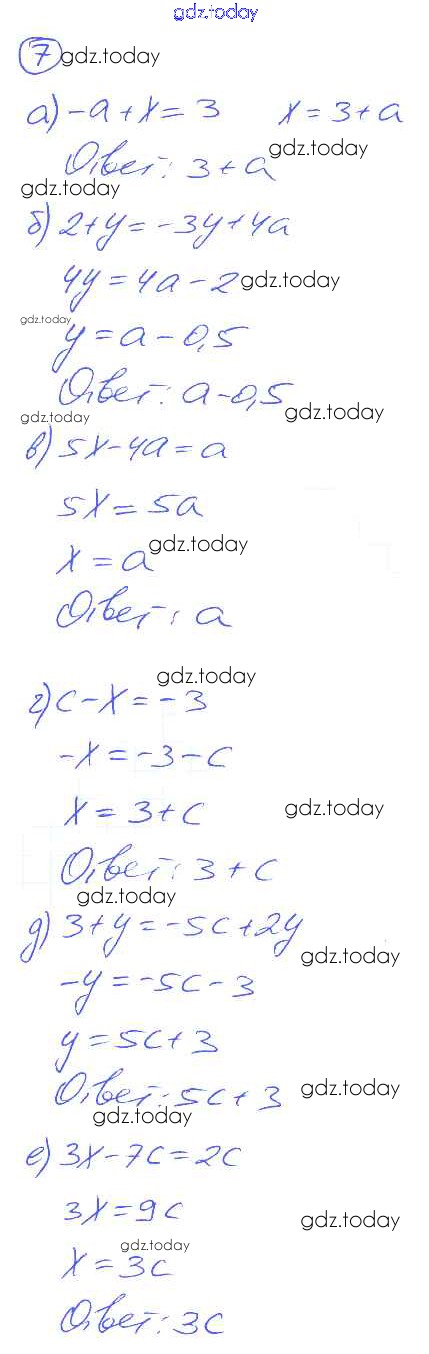 gdz.today
7 gdz.today
а) -a+x=3 x=3+a
Ответ: 3+a gdz.today
gdz.today
б) 2+y=-3y+4a
4y=4a-2 gdz.today
gdz.today
y=a-0,5
Ответ: a-0,5 gdz.today
gdz.today
в) 5x-4a=a
5x=5a
x=a gdz.today
Ответ: a
gdz.today
г) c-x=-3
-x=-3-c
x=3+c gdz.today
Ответ: 3+c
gdz.today
д) 3+y=-5c+2y
gdz.today
-y=-5c-3
y=5c+3
Ответ: 5c+3 gdz.today
gdz.today
е) 3x-7c=2c
3x=9c gdz.today
gdz.today
x=3c
Ответ: 3c